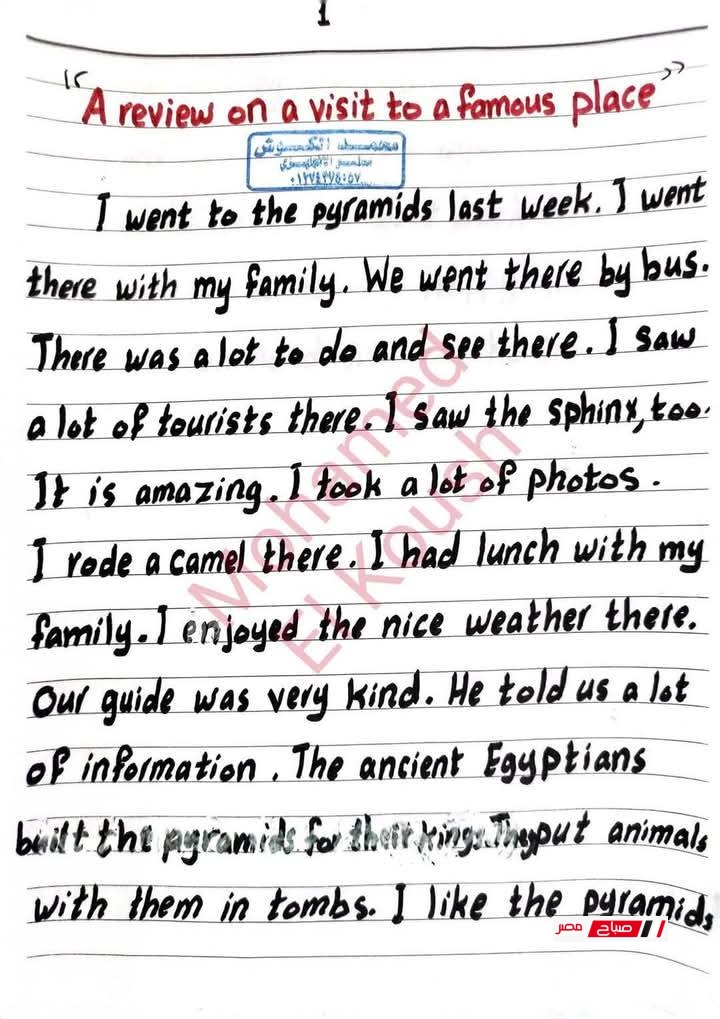 1
"A review on a visit to a famous place"
محمد الكوش
معلم الإنجليزي
I went to the pyramids last week. I went
there with my family. We went there by bus.
There was a lot to do and see there. I saw
a lot of tourists there. I saw the sphinx, too.
It is amazing. I took a lot of photos.
I rode a camel there. I had lunch with my
family. I enjoyed the nice weather there.
Our guide was very kind. He told us a lot
of information. The ancient Egyptians
built the pyramids for their kings. They put animals
with them in tombs. I like the pyramids
Mohamed
El Koush
صباح مصر